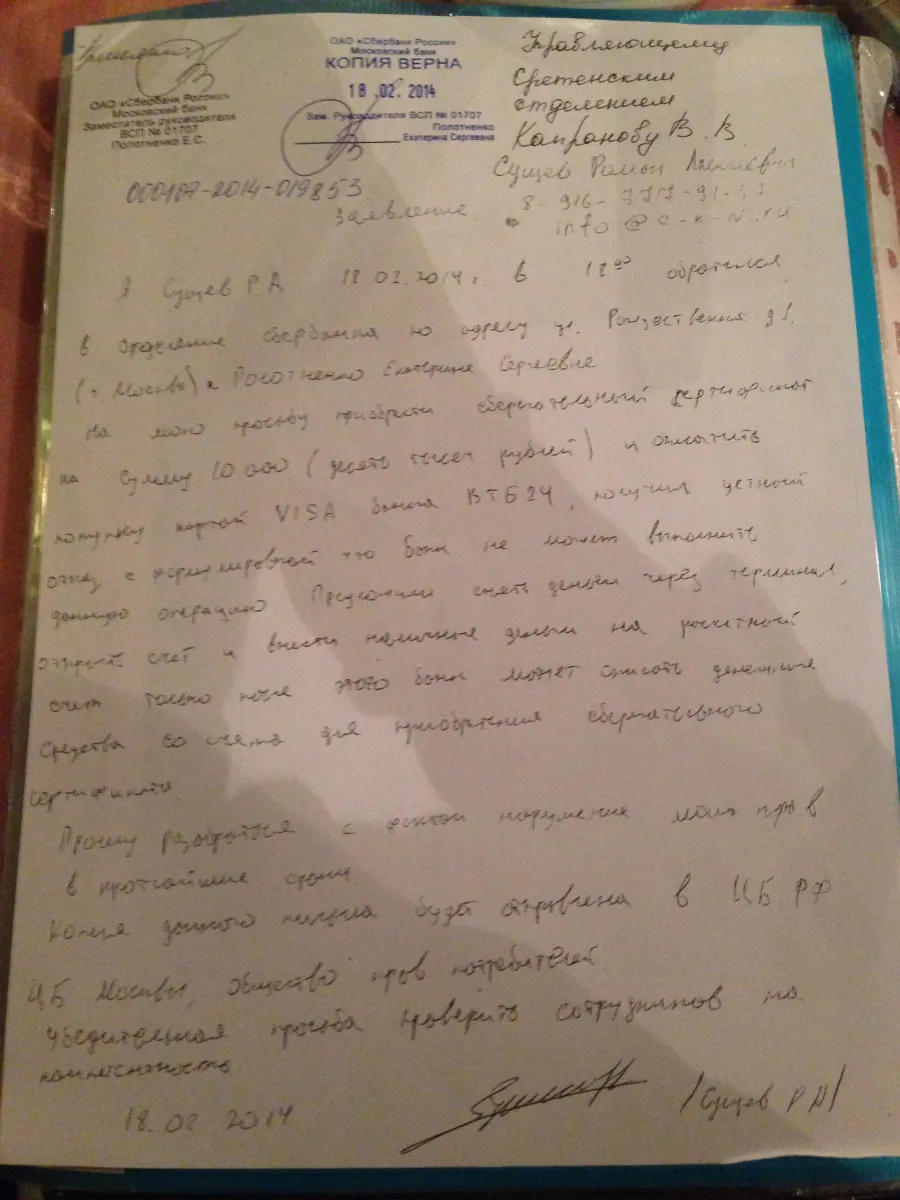 ОАО «Сбербанк России»
Московский банк
Заместитель руководителя
ВСП № 01707
Полотненко Е.С.
ОАО «Сбербанк России»
Московский банк
КОПИЯ ВЕРНА
18.02.2014
Зам. Руководителя ВСП № 01707
Полотненко
Екатерина Сергеевна
Управляющему
Сретенским
отделением
Капранову В. В
Сущев Роман Алексеевич
8-916-777-91-37
info@c-k-n.ru
000107-2014-019853
Заявление
Я Сущев Р А 18 02.2014 г. в 18 00 обратился
в отделение сбербанка по адресу ул. Рождественка д 8.
(г. Москва) к Полотненко Екатерине Сергеевне
На мою просьбу приобрести сберегательный сертификат
на сумму 10 000 (десять тысяч рублей) и оплатить
покупку картой VISA банка ВТБ24, получил устный
отказ с формулировкой что банк не может выполнить
данную операцию Предложили снять деньги через терминал,
открыть счет и внести наличные деньги на расчетный
счет только после этого банк может списать денежные
средства со счета для приобретения сберегательного
сертификата.
Прошу разобраться с фактом нарушения моих прав
в кротчайшие сроки
Копия данного письма будет отправлена в ЦБ РФ
ЦБ Москвы, общество прав потребителей.
Убедительная просьба проверить сотрудников на
компетентность
18. 02 2014
/Сущев Р А/